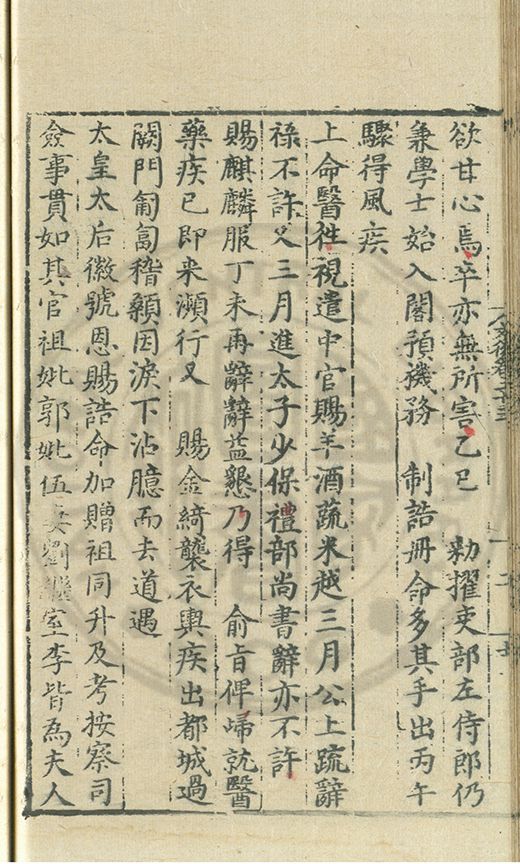 欲甘心焉卒亦無所害乙巳　勑擢吏部左侍郎仍
兼學士始入閣預機務　制誥册命多其手出丙午
驟得風疾
上命醫徃視遣中官賜羊酒蔬米越三月公上疏辭
祿不許又三月進太子少保禮部尚書辭亦不許
賜麒麟服丁未再辭辭益懇乃得　俞旨俾歸就醫
藥疾已即来瀕行又　賜金綺襲衣輿疾出都城過
闕門匍匐稽顙因淚下沾臆而去道遇
太皇太后徽號恩賜誥命加贈祖同升及考按察司
僉事貫如其官祖妣郭妣伍妻劉繼室李皆為夫人